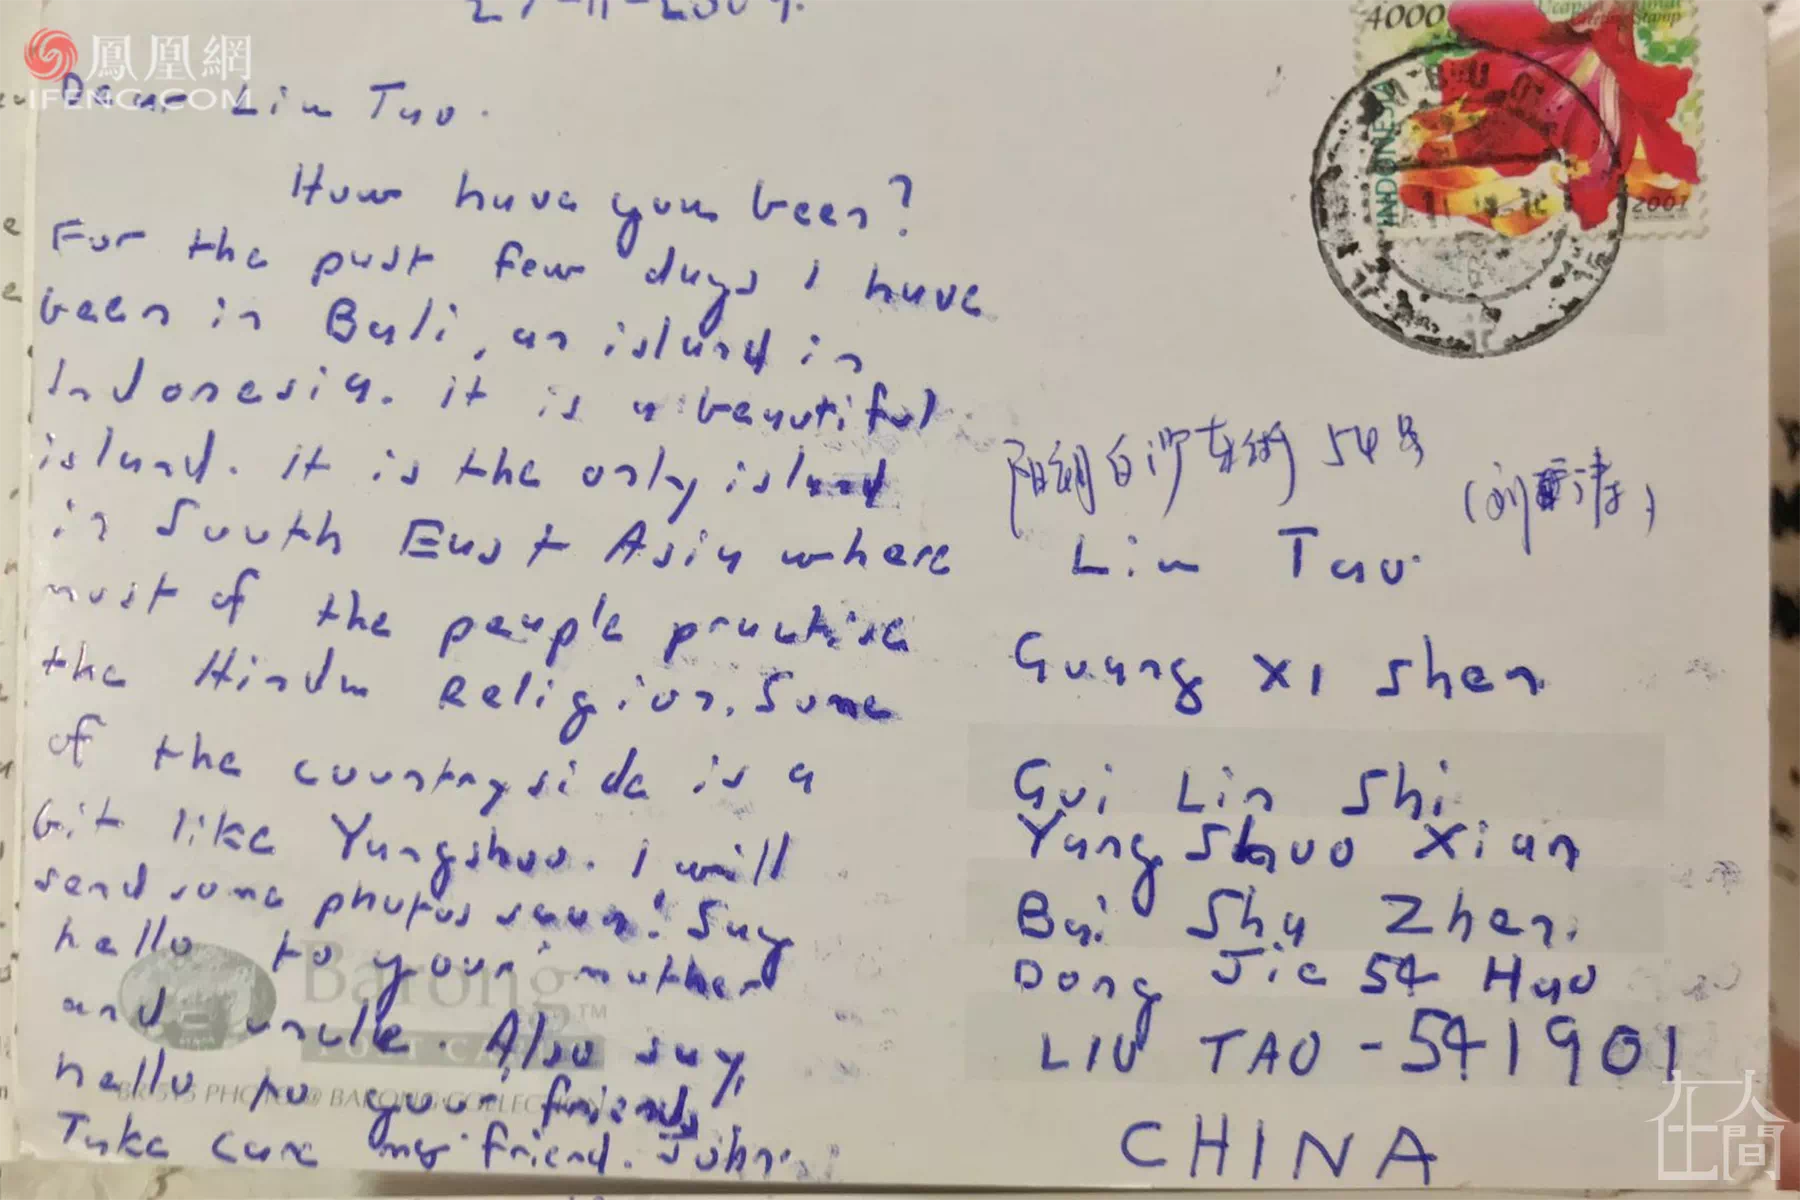 鳳凰網
IFENG.COM
Dear Liu Tao.
How have you been?
For the past few days I have
been in Bali, an island in
Indonesia. it is a beautiful
island. it is the only island
in South East Asia where
most of the people practise
the Hindu Religion. Some
of the countryside is a
bit like Yungshuo. I will
send some photos soon! Say
hello to your mother
and uncle. Also say,
hello to your friends,
Take care my friend. John.
4000
INDONESIA
2001
阳朔白沙东街54号
Liu Tao.
Guang XI Shen
Gui Lin Shi
Yang Shuo Xian
Bai Sha Zhen.
Dong Jie 54 Hao
LIU TAO - 541901
CHINA
Barong™
POST CARD
PHOTO © BARONG COLLECTION
在人間